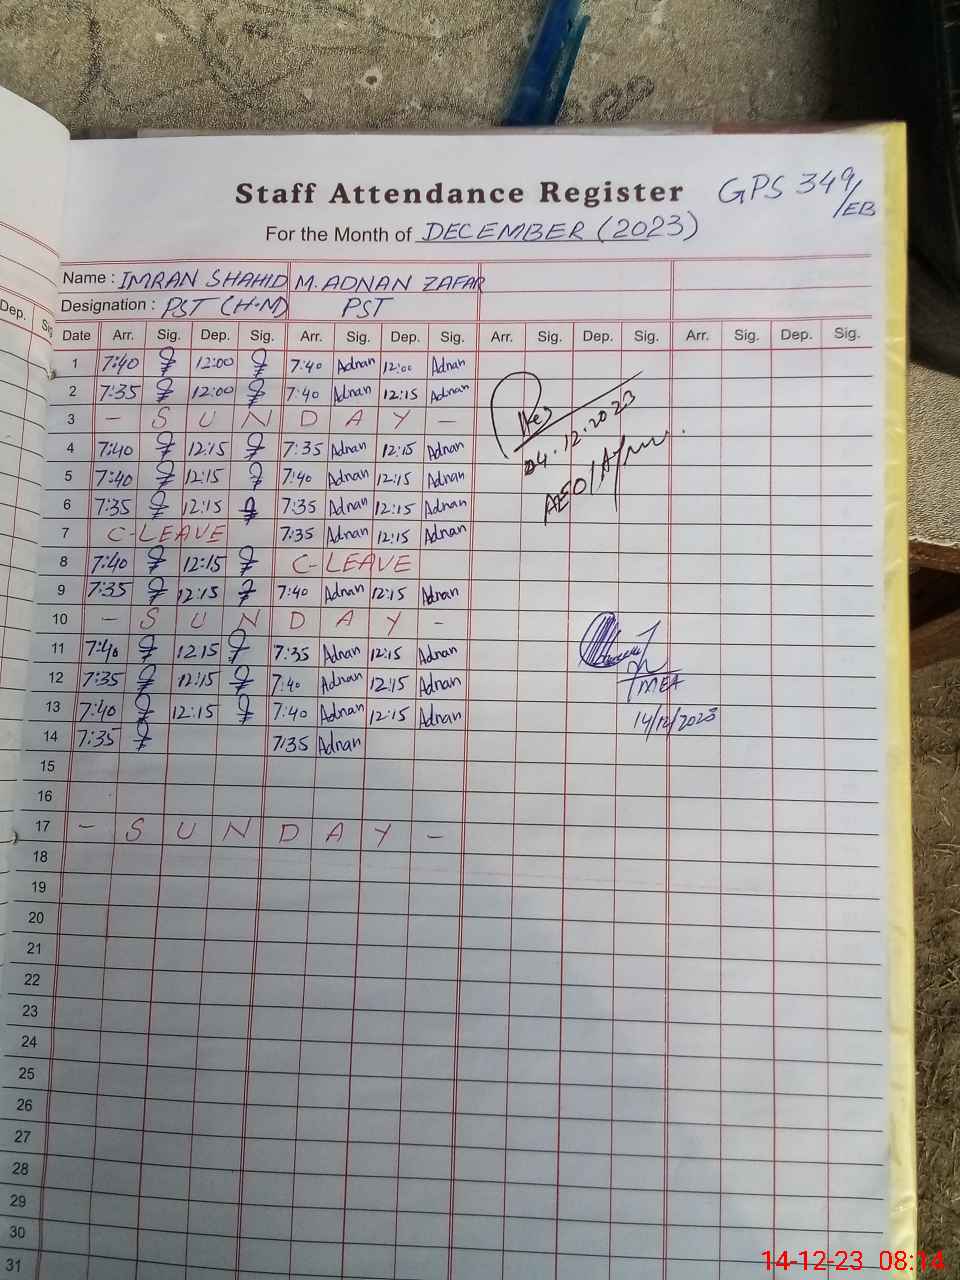 Staff Attendance Register GPS 349/EB
For the Month of DECEMBER (2023)
Name : IMRAN SHAHID M. ADNAN ZAFAR
Designation : PST (H.M) PST
Date Arr. Sig. Dep. Sig. Arr. Sig. Dep. Sig. Arr. Sig. Dep. Sig. Arr. Sig. Dep. Sig.
1 7:40 12:00 7:40 Adnan 12:00 Adnan
2 7:35 12:00 7:40 Adnan 12:15 Adnan
3 - S U N D A Y -
04.12.2023
4 7:40 12:15 7:35 Adnan 12:15 Adnan
AEO
5 7:40 12:15 7:40 Adnan 12:15 Adnan
6 7:35 12:15 7:35 Adnan 12:15 Adnan
7 C-LEAVE 7:35 Adnan 12:15 Adnan
8 7:40 12:15 C-LEAVE
9 7:35 12:15 7:40 Adnan 12:15 Adnan
10 - S U N D A Y -
11 7:40 12:15 7:35 Adnan 12:15 Adnan
12 7:35 12:15 7:40 Adnan 12:15 Adnan
MEA
13 7:40 12:15 7:40 Adnan 12:15 Adnan
14/12/2023
14 7:35 7:35 Adnan
15
16
17 - S U N D A Y -
18
19
20
21
22
23
24
25
26
27
28
29
30
31
Dep.
14-12-23 08:14